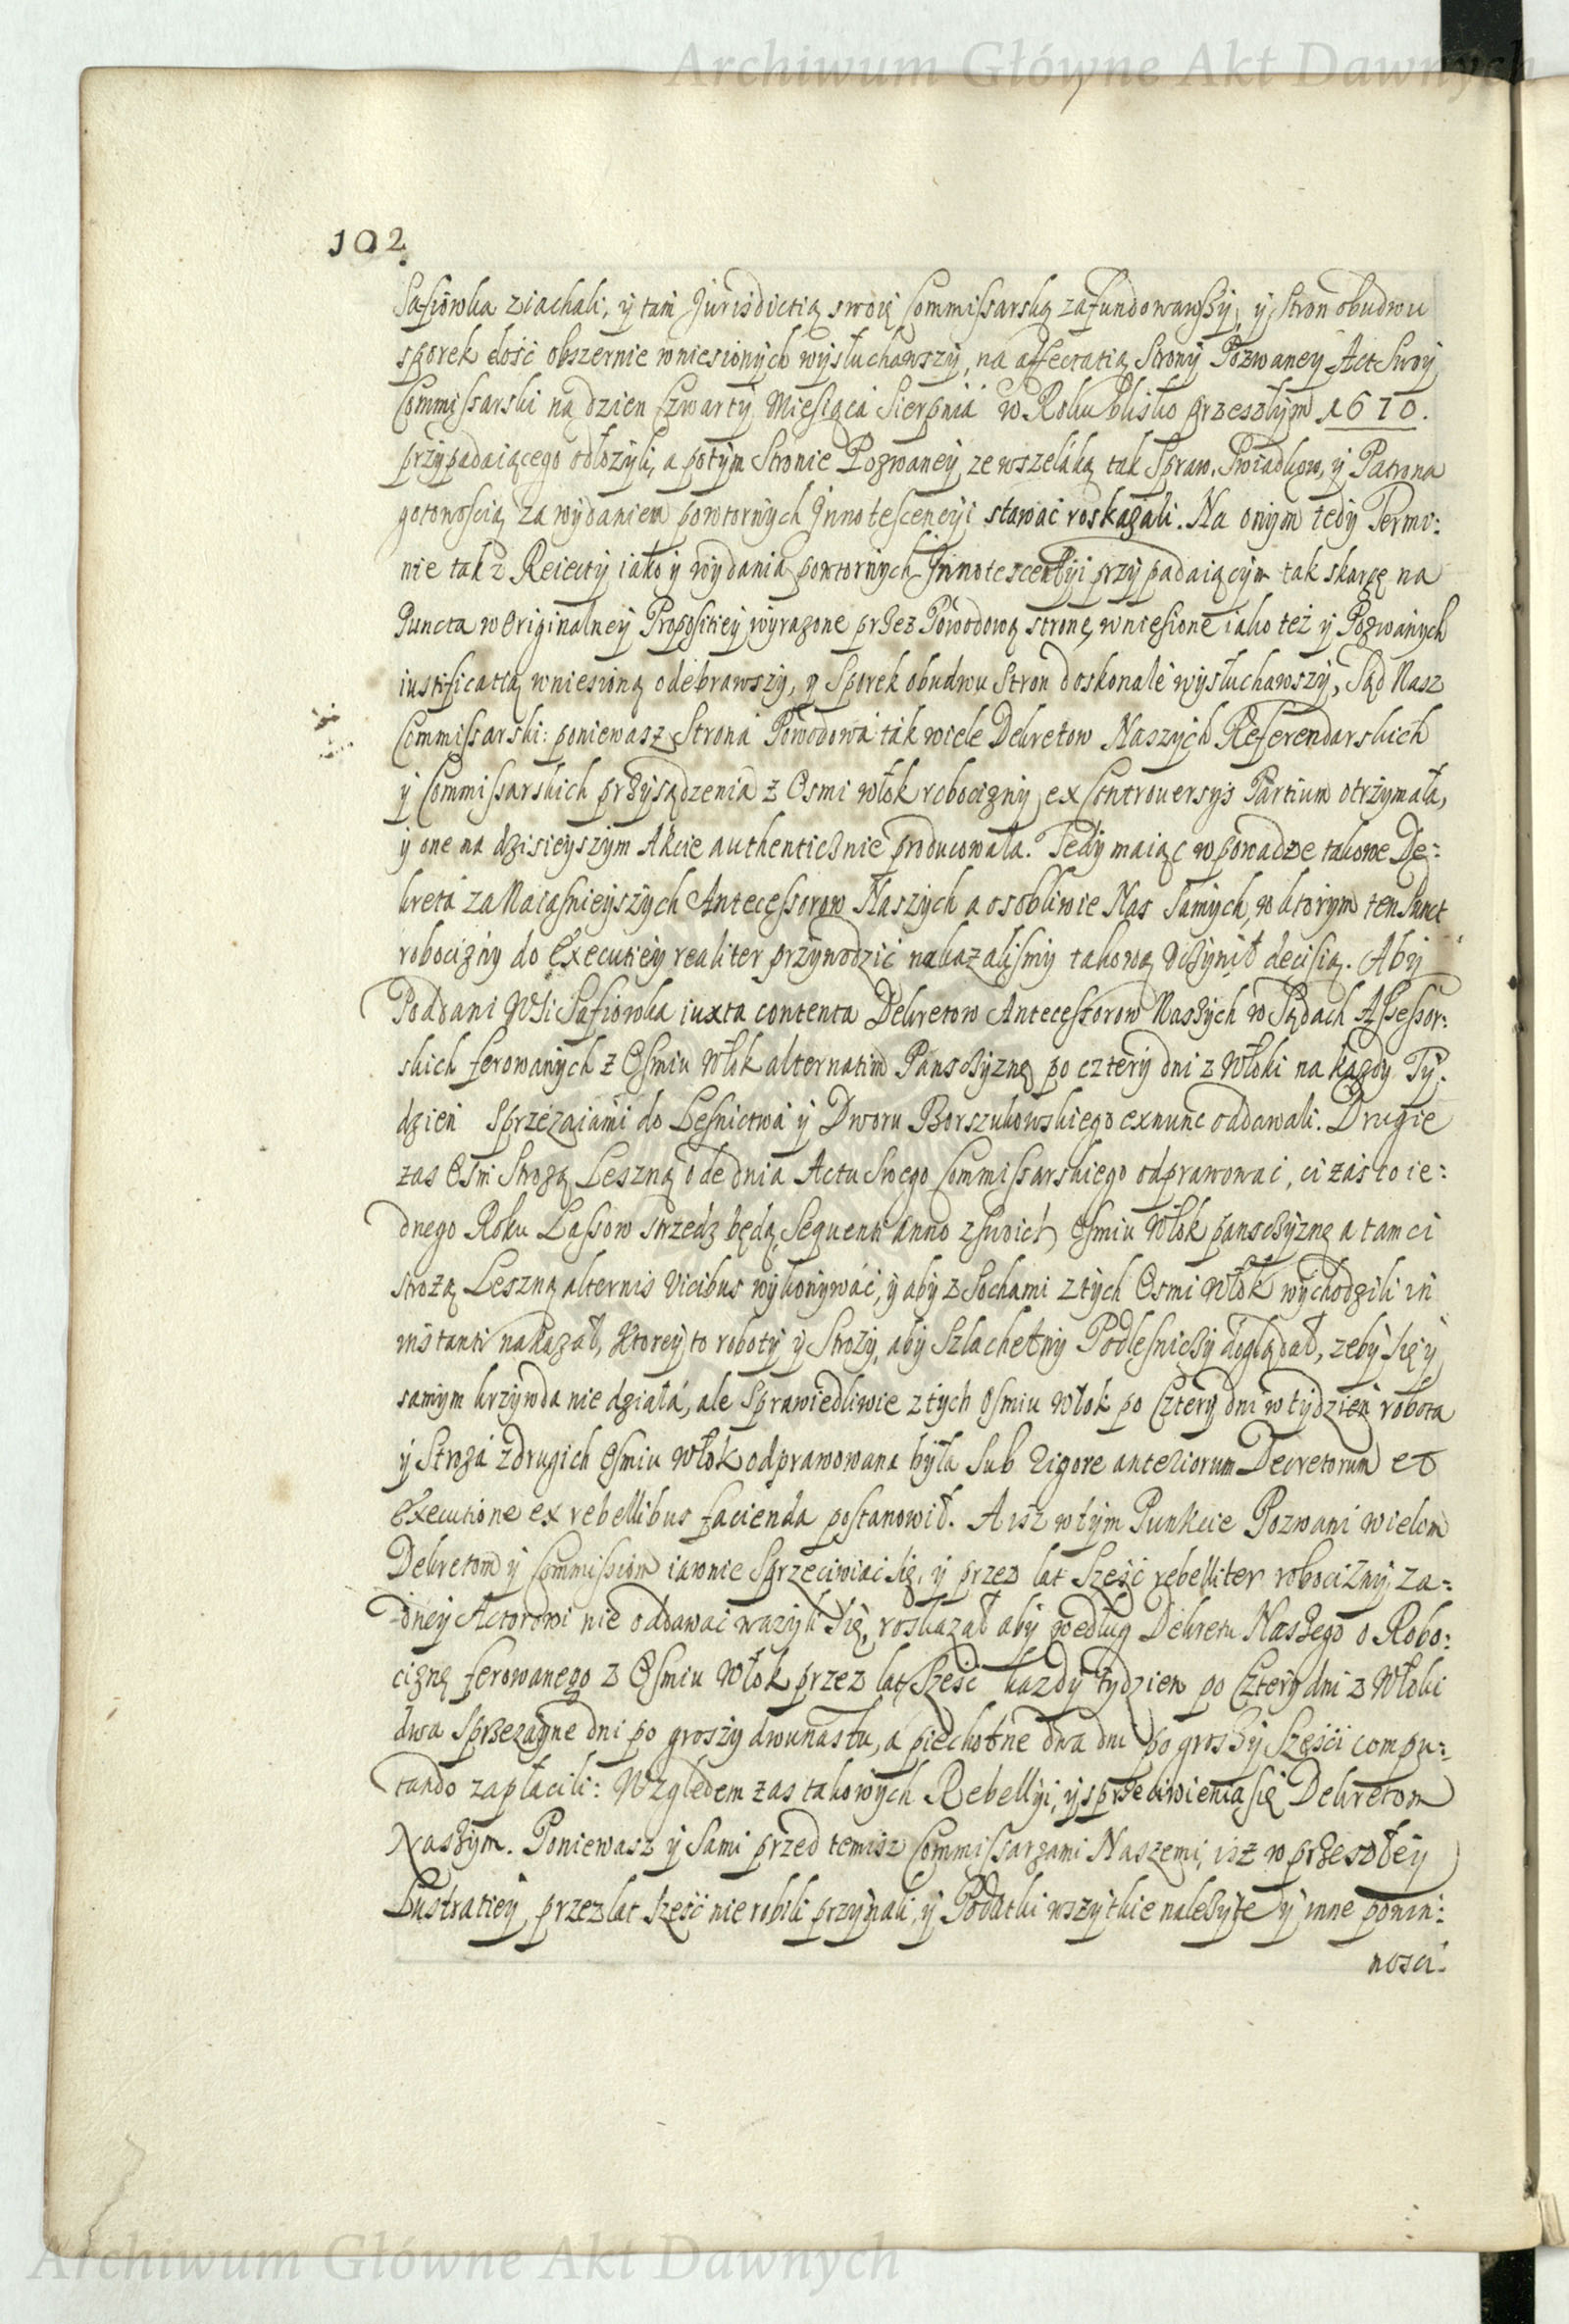 Archiwum Główne Akt Dawnych
102.
Safiowka ziachali, y tam Jurisdictią swoię Commissarską zafundowawszy, y Stron obudwu
sporek dość obszernie wniesionych wysłuchawszy, na affectatią Strony Pozwaney Act Swoy
Commissarski na dzien Czwarty Miesiąca Sierpnia w Roku blisko przeszłym 1670.
przypadaiącego odłozyli, a potym Stronie Pozwaney ze wszelaką tak Spraw, Swiadkow, y Patrona
gotowoscią za wydaniem powtornych Innotescencyi stawać roskazali. Na onym tedy Termi:
nie tak z Reiecty iako y wydania powtornych Innotescentyi przypadaiącym tak skargę na
Puncta w Originalney Propositiey wyrazone przez Powodową stronę wniesione iako też y Pozwanych
iustificatią wniesioną odebrawszy, y Sporek obudwu Stron doskonale wysłuchawszy, Sąd Nasz
Commissarski: poniewasz Strona Powodowa tak wiele Dekretow Naszych Referendarskich
y Commissarskich przysądzenia z Osmi włok robocizny ex Controversys Partium otrzymała,
y one na dzisieyszym Akcie authenticznie producowała. Tedy maiąc w powadze takowe De:
kreta za Naiasnieyszych Antecessorow Naszych a osobliwie Nas Samych, w ktorym ten Punct
robocizny do Executiey realiter przywodzić nakazalismy takową uczynił decisią. Aby
Poddani Wsi Safiowka iuxta contenta Dekretow Antecessorow Naszych w Sądach Assessor:
skich ferowanych z Osmiu Włok alternatim Panszczyznę po cztery dni z Włoki na kazdy Ty:
dzień Sprzęzaiami do Lesnictwa y Dworu Borszukowskiego exnunc oddawali. Drugie
zas Osm Strozą Leszną ode dnia Actu Swego Commissarskiego odprawowac, ci zaś co ie:
dnego Roku Lassow strzedz będą, Sequenti Anno z swoich Osmiu Włok panszczyznę a tam ci
strozą Leszną alternis Vicibus wykonywać, y aby z Sochami z tych Osmi Włok wychodzili in
instanti nakazał, Ktorey to roboty y Strozy, aby Szlachetny Podlesniczy doglądał, zeby się y
samym krzywda nie działa, ale Sprawiedliwie z tych Osmiu Włok po Cztery dni w tydzień robota
y Stroza z drugich Osmiu Włok odprawowana była Sub rigore anteriorum Decretorum et
Executione ex rebellibus facienda postanowił. A isz w tym Punkcie Pozwani wielom
Dekretom y Commissiom iawnie Sprzeciwiac się, y przez lat Sześć rebelliter robocizny za:
dney Actorowi nie oddawac wazyli się, roskazał aby według Dekretu Naszego o Robo:
ciznę ferowanego z Osmiu Włok przez lat Sześć kazdy tydzien po Cztery dni z Włoki
dwa Sprzezayne dni po groszy dwunastu, a piechotne dwa dni po groszy Sześci compu:
tando zapłacili: Względem zas takowych Rebellyi, y sprzeciwienia się Dekretom
Naszym. Poniewasz y Sami przed temisz Commissarzami Naszemi, isz w przeszłey
Lustratiey przez lat sześć nie robili przyznali, y Podatki wszytkie nalezyte y inne powin:
nosci.
Archiwum Główne Akt Dawnych